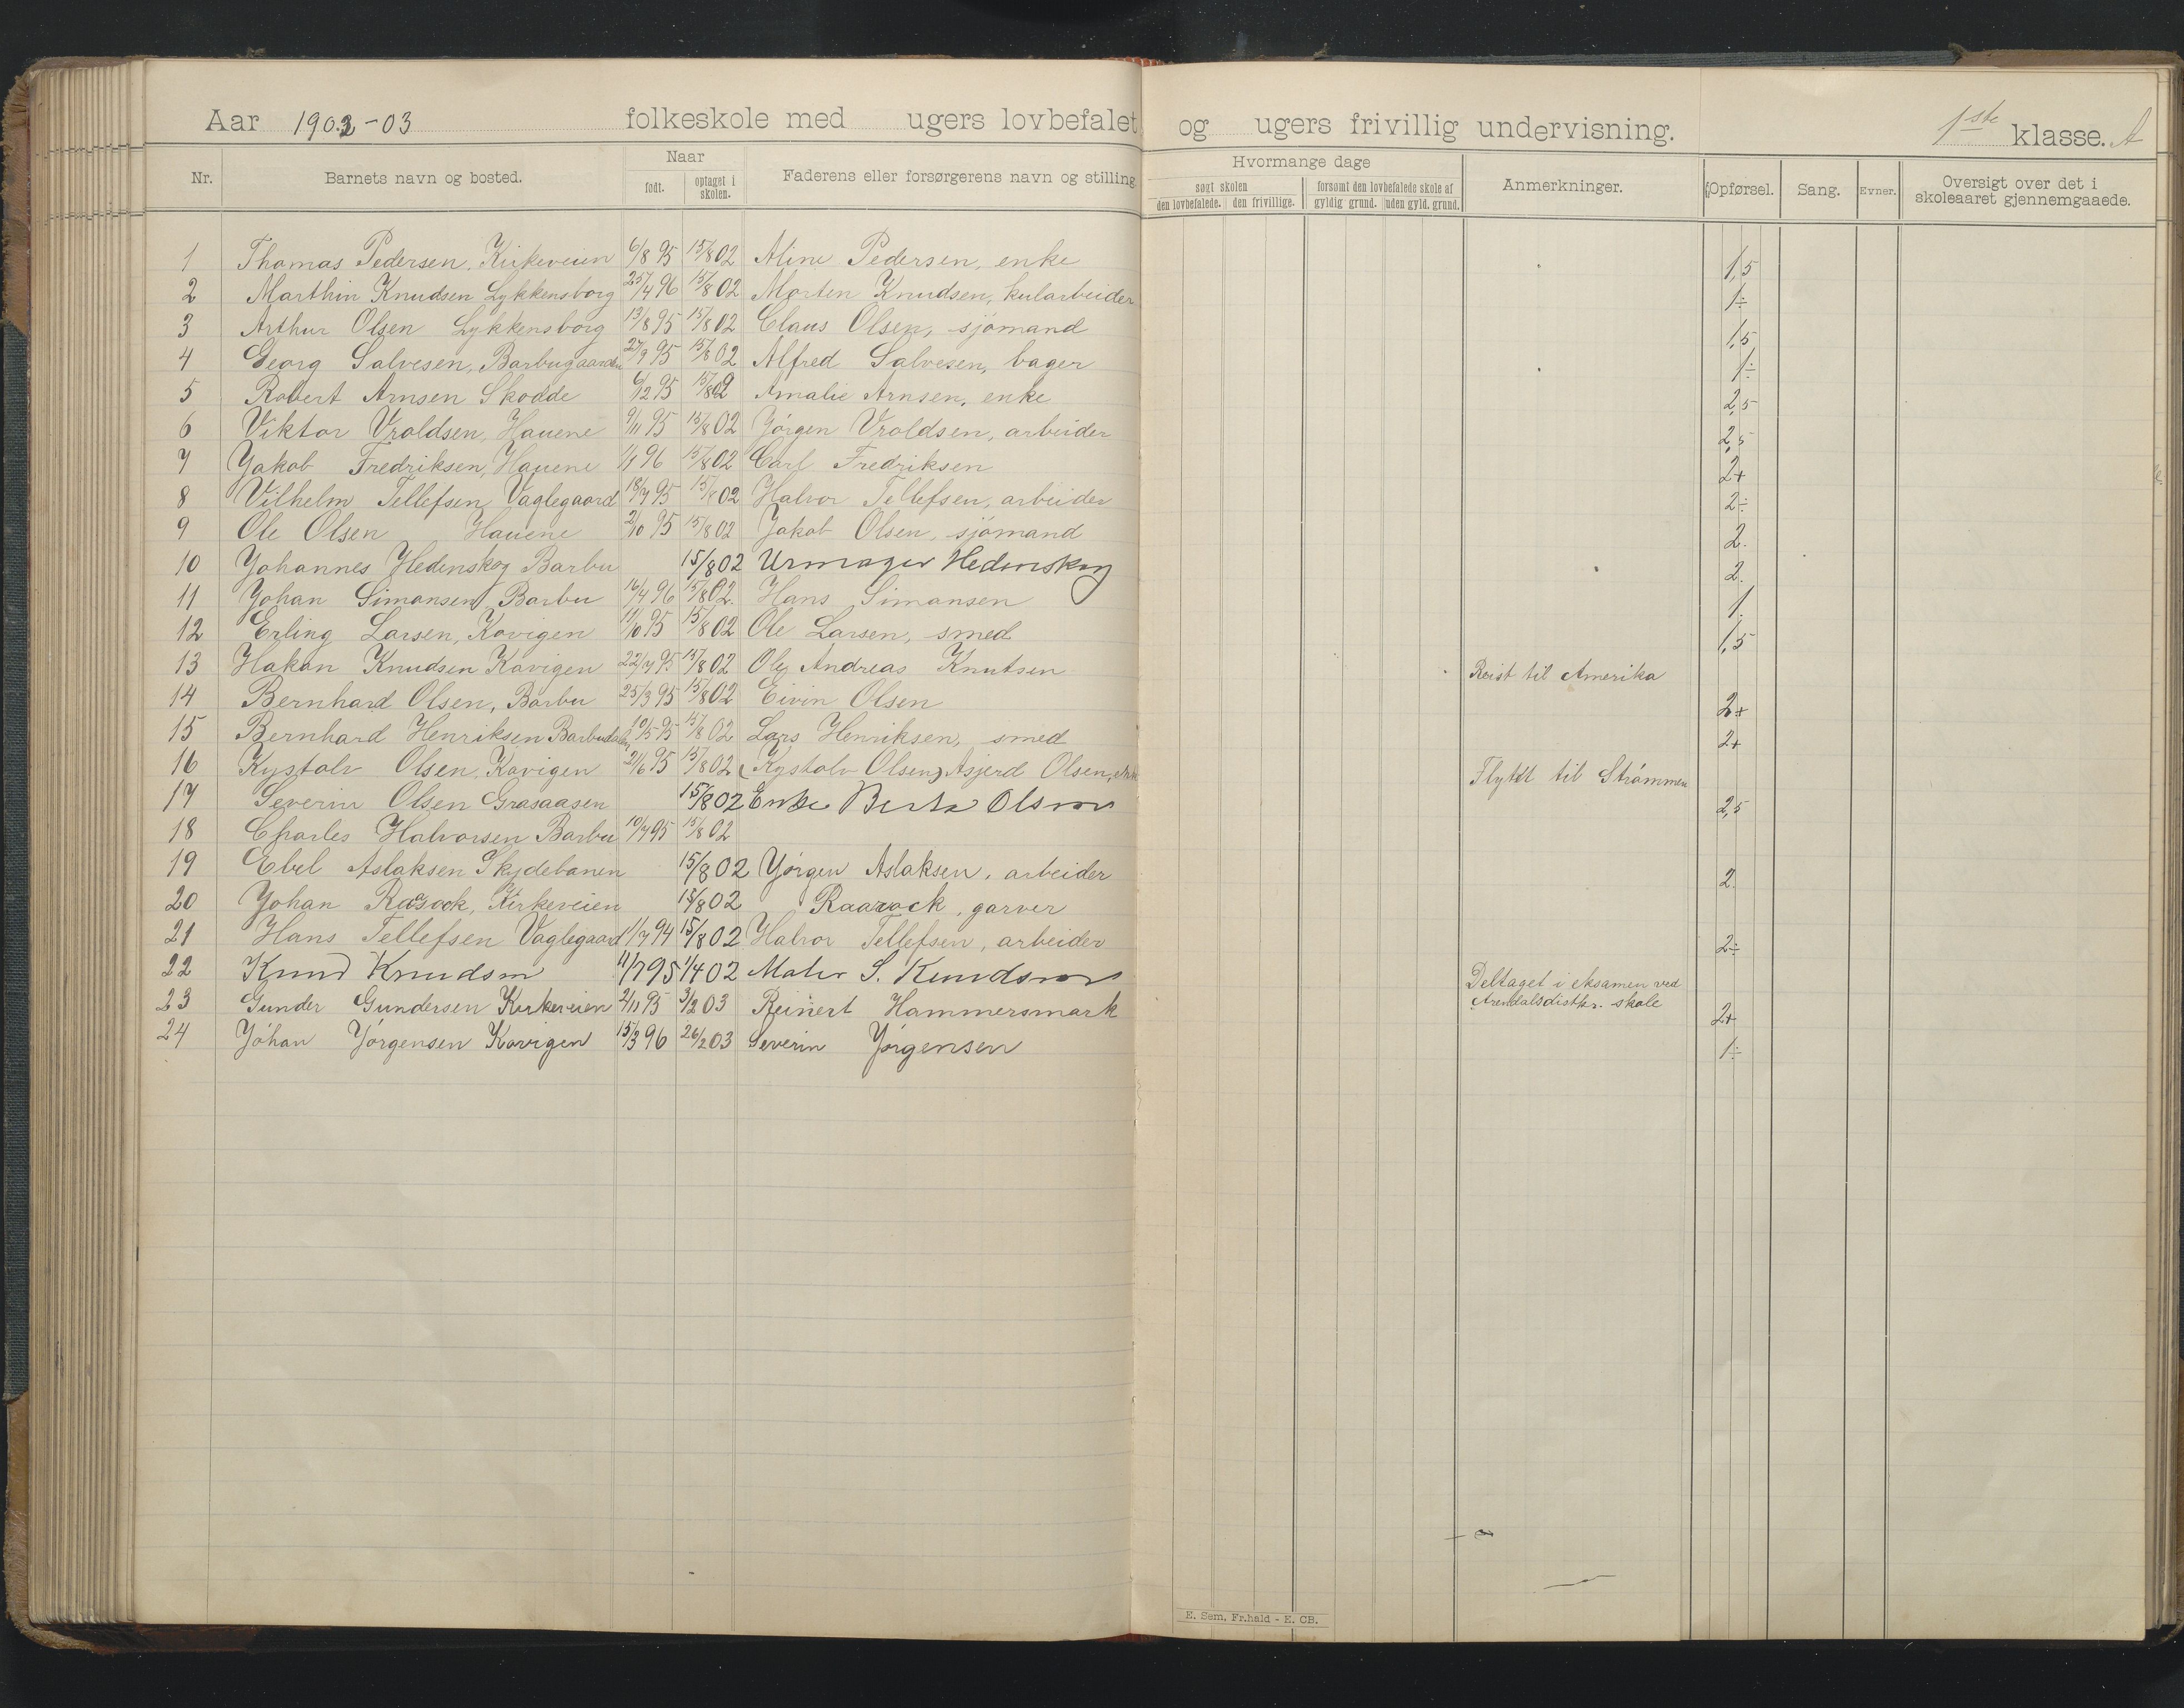 Aar 1902-03 folkeskole med ugers lovbefalet og ugers frivillig undervisning. 1ste klasse. A
Nr. Barnets navn og bosted. Naar født. optaget i skolen. Faderens eller forsørgerens navn og stilling Hvormange dage søgt skolen den lovbefalede. den frivillige. forsømt den lovbefalede skole af gyldig grund. uden gyld. grund. Anmerkninger. Opførsel. Sang. Evner. Oversigt over det i skoleaaret gjennemgaaede.
1 Thomas Pedersen, Kirkeveien 6/8 95 15/8 02 Aline Pedersen, enke 1,5
2 Marthin Knudsen Lykkensborg 25/4 96 15/8 02 Morten Knudsen, kularbeider 1÷
3 Arthur Olsen Lykkensborg 13/8 95 15/8 02 Claus Olsen, sjómand 1,5
4 Georg Salvesen, Barbugaarden 27/9 95 15/8 02 Alfred Salvesen, bager 1÷
5 Robert Arnsen Skodde 6/12 95 15/8 02 Amalie Arnsen, enke 2,5
6 Viktor Vroldsen, Hauene 9/11 95 15/8 02 Jórgen Vroldsen, arbeider 2,5
7 Jakob Fredriksen, Hauene 1/1 96 15/8 02 Carl Fredriksen 2+
8 Vilhelm Tellefsen Vaglegaard 18/7 95 15/8 02 Halvor Tellefsen, arbeider 2÷
9 Ole Olsen Hauene 2/10 95 15/8 02 Jakob Olsen, sjómand 2.
10 Johannes Hedenskog Barbu 15/8 02 Urmager Hedenskog 2.
11 Johan Simonsen, Barbu 16/4 96 15/8 02. Hans Simonsen 1.
12 Erling Larsen, Kovigen 11/10 95 15/8 02 Ole Larsen, smed 1,5
13 Hakon Knudsen Kavigen 22/7 95 15/8 02 Ole Andreas Knutsen Reist til Amerika
14 Bernhard Olsen, Barbu 25/3 95 15/8 02 Eivin Olsen 2+
15 Bernhard Henriksen Barbudalen 10/5 95 15/8 02 Lars Henriksen, smed 2+
16 Kystolv Olsen, Kavigen 21/6 95 15/8 02 (Kystolv Olsen) Asjerd Olsen, Flyttet til Strómmen
17 Severin Olsen Grasaasen 15/8 02 Enke Berta Olsen 2,5
18 Charles Halvorsen Barbu 10/7 95 15/8 02
19 Ebel Aslaksen Skydebanen 15/8 02 Jórgen Aslaksen, arbeider 2.
20 Johan Kirkeveien 15/8 02 Raarock, garver
21 Hans Tellefsen Vaglegaard 11/7 94 15/8 02 Halvor Tellefsen, arbeider 2÷
22 Knud Knudsen 11/7 95 1/4 02 S. Knudsen Deltaget i eksamen ved
Arendalsdistkr. skole
23 Gunder Gundersen Kirkeveien 2/11 95 3/2 03 Reinert Hammersmark 2+
24 Johan Jórgensen Kavigen 15/3 96 26/2 03 Severin Jórgensen 1÷
E. Sem, Fr.hald - E. CB.